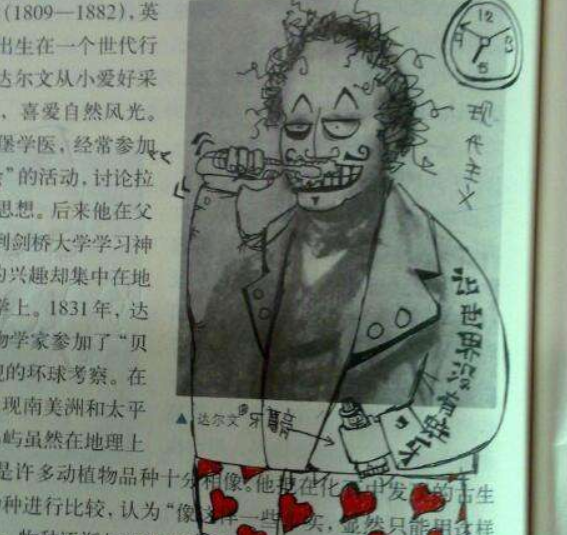 (1809—1882),英
出生在一个世代行
达尔文从小爱好采
,喜爱自然风光。
堡学医,经常参加
”的活动,讨论拉
思想。后来他在父
到剑桥大学学习神
的兴趣却集中在地
学上。1831年,达
物学家参加了“贝
的环球考察。在
现南美洲和太平
屿虽然在地理上
是许多动植物品种十分相像。他在化中发的古生
种进行比较,认为“像一些实,显然只能用这样
12
3
6
现代主义
让世界没有蛀牙
▲ 达尔文
牙膏